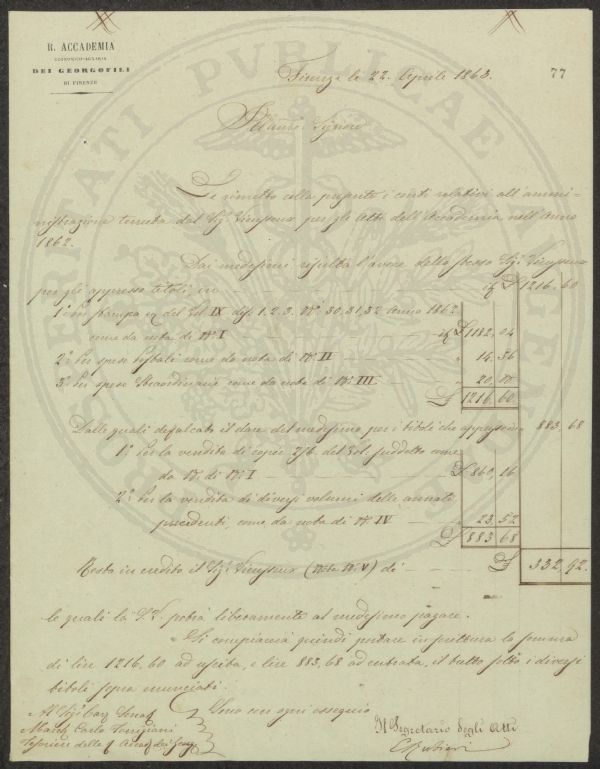 R. ACCADEMIA
ECONOMICO-AGRARIA
DEI GEORGOFILI
DI FIRENZE
Firenze li 22. Aprile 1863.
77
Signore
Le rimetto colla presente i conti relativi all'ammi-
nistrazione tenuta dal Sig. Vieusseux per gli Atti dell'Accademia nell'Anno
1862.
Dai medesimi risulta l'avere dello stesso Sig. Vieusseux
per gli appresso titoli, in £ 1216. 60
1° Per stampa del Vol IX disp. 1. 2. 3. N.i 30, 31, 32 Anno 1862
come da nota di N. I £ 1182. 04
2° Per spese Postali come da nota di N. II " 14. 36
3° Per spese Straordinarie come da nota di N. III " 20.
£ 1216 60
Dalle quali defalcato il dare del medesimo per i titoli che appresso 883, 68
1° Per la vendita di copie del Vol. suddetto come
da N. di N. I £ 860, 16
2° Per la vendita di diversi volumi delle annate
precedenti, come da nota di N. IV 23, 52
£ 883 68
Resta in credito il Sig. Vieusseux (Nota N. V) di £ 332, 92.
le quali la S. V. potrà liberamente al medesimo pagare.
Si compiacerà quindi portare in scrittura la somma
di lire 1216, 60 ad uscita, e lire 883, 68 ad entrata, il tutto sotto i diversi
titoli sopra enunciati.
Sono con ogni ossequio
Al Sig. Cav. Senat.
March. Carlo Torrigiani
Tesoriere della Accad. dei Georg.
Il Segretario degli Atti
C. Rubieri
PROSPERITATI PUBLICAE AUGENDAE